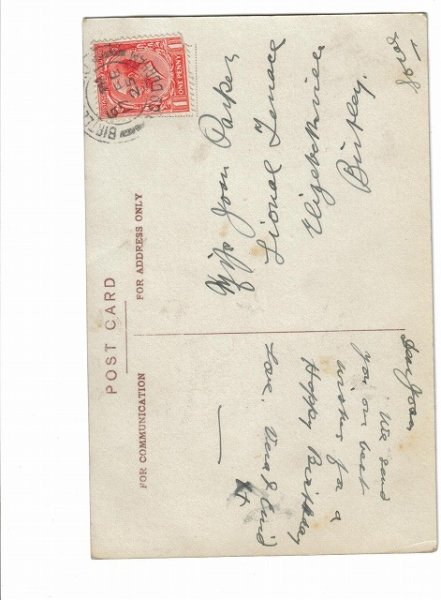 POST CARD
FOR COMMUNICATION
FOR ADDRESS ONLY
ONE PENNY
Dear Joan
We send
you our best
wishes for a
Happy Birthday
Love, Vera & Enid
Miss Joan Parker
Lional Terrace
Elizabethville
Birtley.